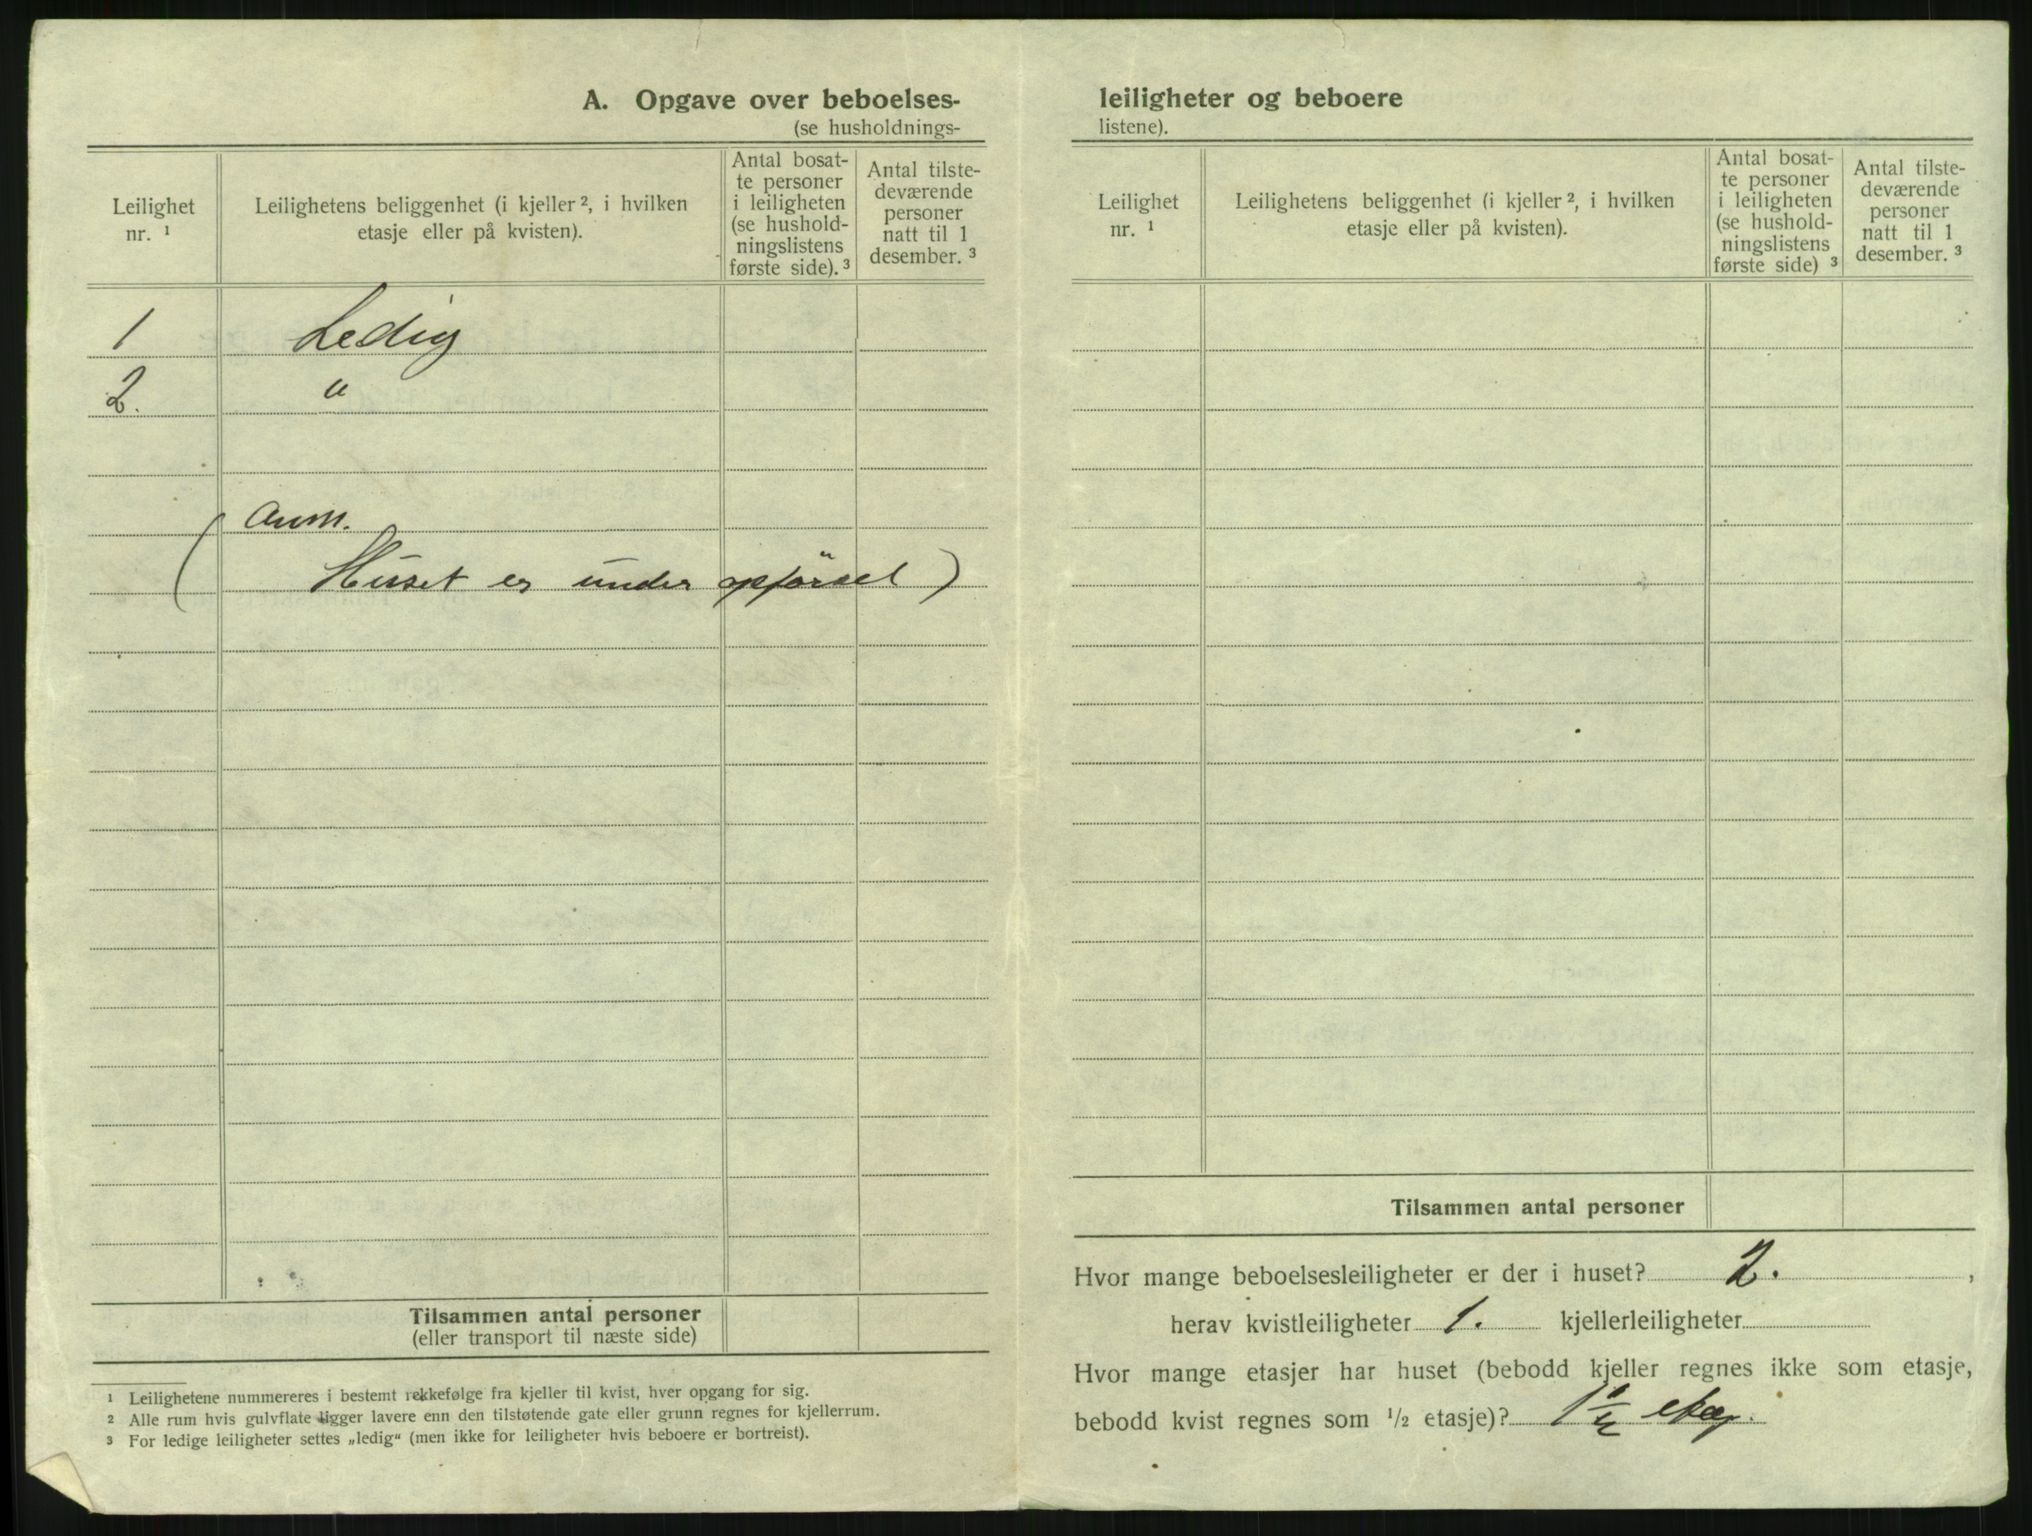 A. Opgave over beboelses-
(se husholdnings-
Leilighet nr. ¹
Leilighetens beliggenhet (i kjeller ², i hvilken etasje eller på kvisten).
Antal bosat-
te personer
i leiligheten
(se hushold-
ningslistens
første side). ³
Antal tilste-
deværende
personer
natt til 1
desember. ³
1 Ledig
2. "
( Anm.
Huset er under opførsel )
Tilsammen antal personer
(eller transport til næste side)
¹ Leilighetene nummereres i bestemt rekkefølge fra kjeller til kvist, hver opgang for sig.
² Alle rum hvis gulvflate ligger lavere enn den tilstøtende gate eller grunn regnes for kjellerrum.
³ For ledige leiligheter settes „ledig“ (men ikke for leiligheter hvis beboere er bortreist).
leiligheter og beboere
listene).
Leilighet nr. ¹
Leilighetens beliggenhet (i kjeller ², i hvilken etasje eller på kvisten).
Antal bosat-
te personer
i leiligheten
(se hushold-
ningslistens
første side) ³
Antal tilste-
deværende
personer
natt til 1
desember. ³
Tilsammen antal personer
Hvor mange beboelsesleiligheter er der i huset? 2. ,
herav kvistleiligheter 1. kjellerleiligheter
Hvor mange etasjer har huset (bebodd kjeller regnes ikke som etasje,
bebodd kvist regnes som ½ etasje)? 1 ½